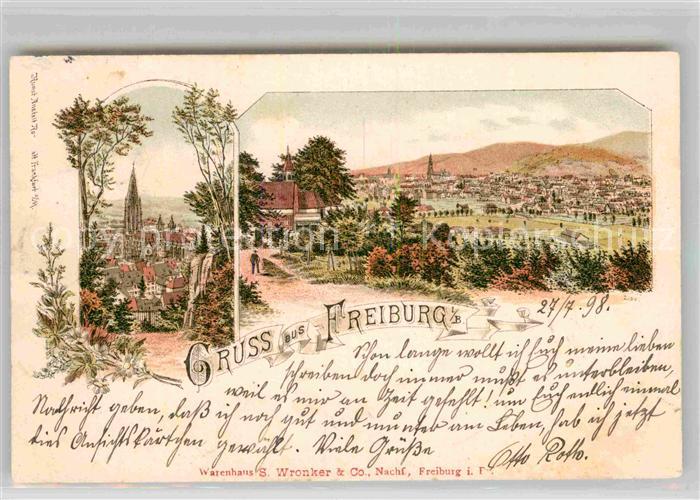 Kunst Anstalt Ro
tt Frankfurt a/M.
GRUSS aus FREIBURG i/B
27/7 98.
Schon lange wollt ich Euch meine lieben
schreiben doch immer mußt es unterbleiben,
weil es mir an Zeit gefehlt! um Euch endlich einmal
Nachricht geben, daß ich noch gut und munter am Leben, hab ich jetzt
dies Ansichtskärtchen gewählt. Viele Grüße
Otto Roth.
Warenhaus S. Wronker & Co., Nachf., Freiburg i. B.